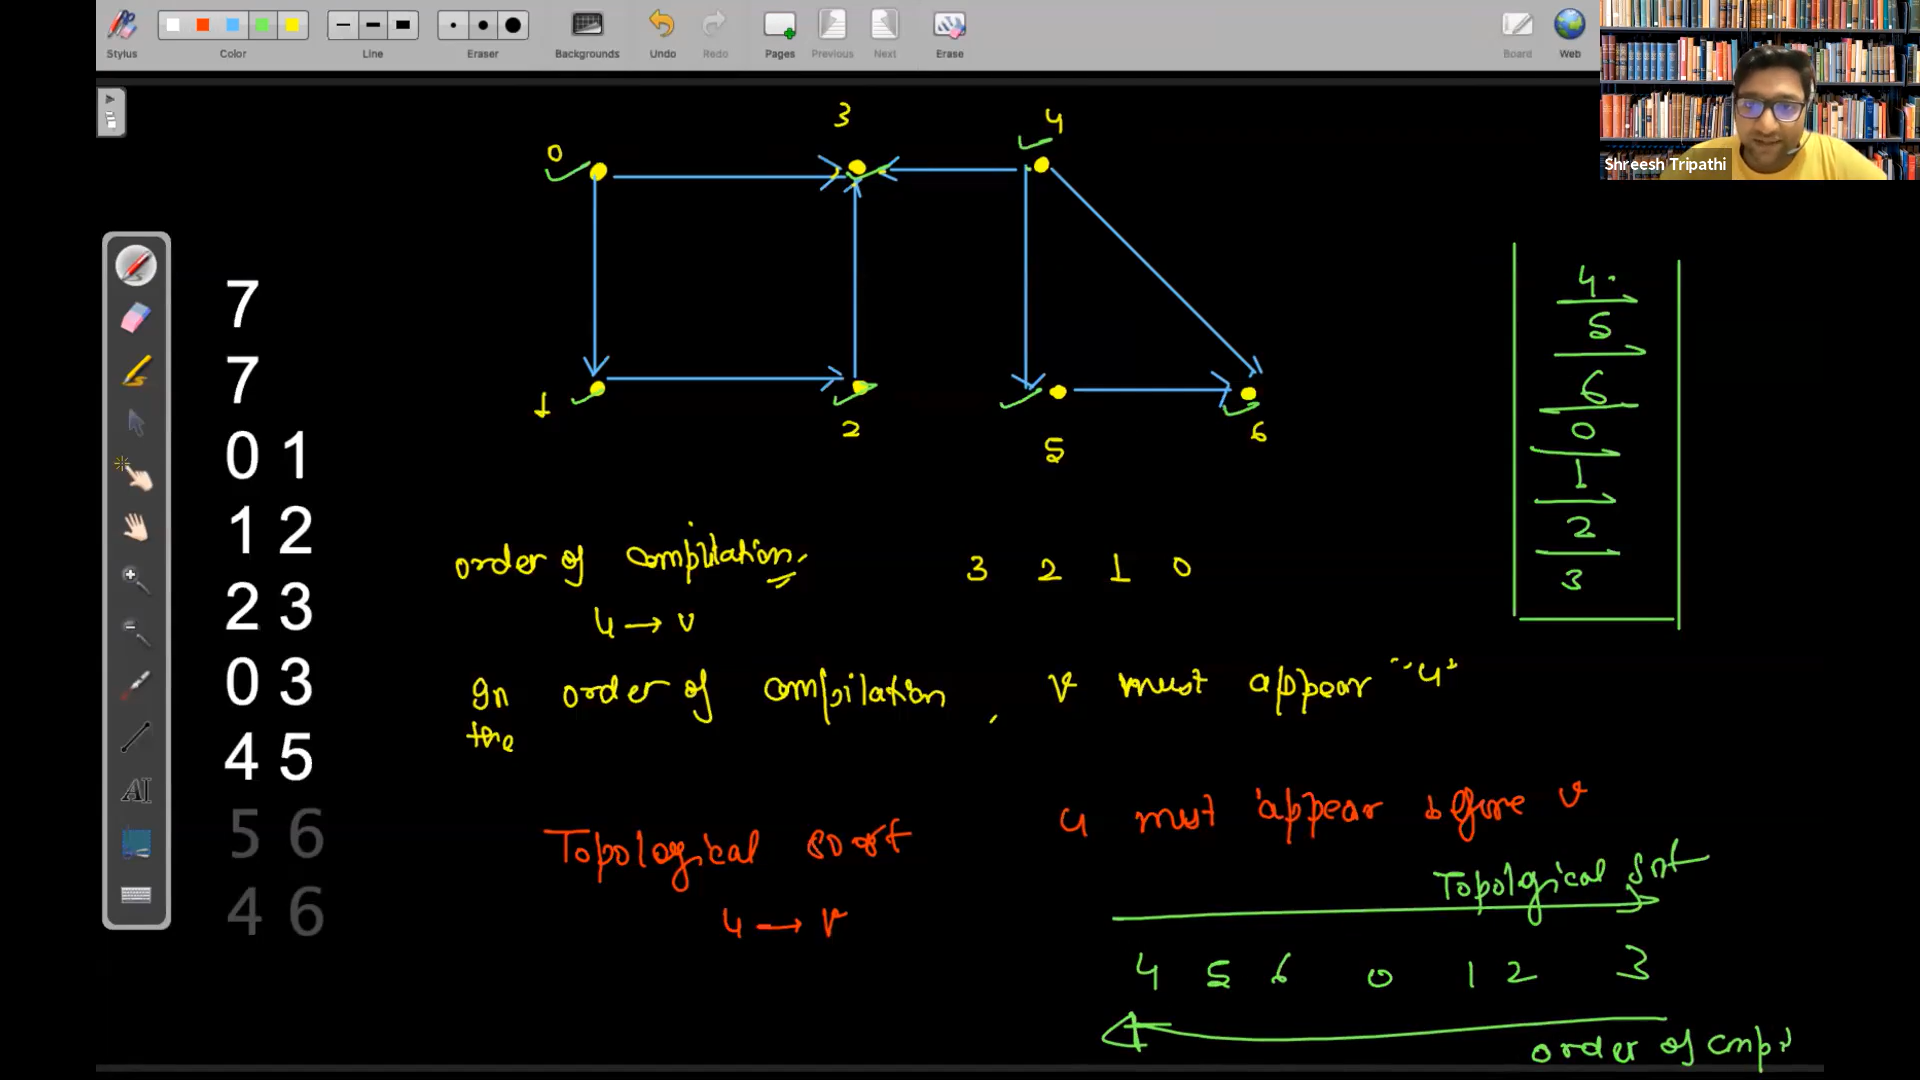 Stylus
Color
Line
Eraser
Backgrounds
Undo
Redo
Pages
Previous
Next
Erase
Board
Web
Shreesh Tripathi
0
3
4
1
2
5
6
7
7
0 1
1 2
2 3
0 3
4 5
5 6
4 6
4
5
6
0
1
2
3
order of compilation. 3 2 1 0
u → v
In the order of compilation, v must appear "u"
Topological sort u must appear before v
u → v
Topological Sort
4 5 6 0 1 2 3
order of cmpi
AI